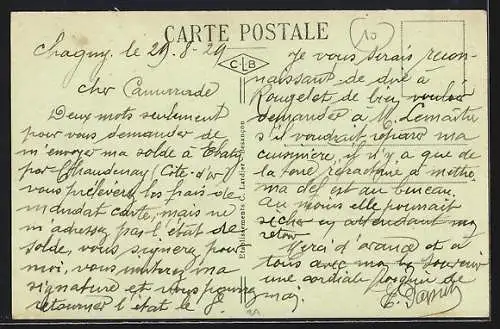 CARTE POSTALE
10
CLB
Etablissements C. Lardier, Besançon
Chagny, le 29-8-29
cher Camarade
Deux mots seulement
pour vous demander de
m'envoyer ma solde à
par Chaudenay (Côte-d'or)
vous prélèverez les frais de
mandat carte, mais ne
m'adressez pas l'état de
solde, vous signerez pour
moi, vous imiterez ma
signature et vous pourrez
retourner l'état le
Je vous serais recon-
naissant de dire à
Rouget de bien vouloir
demander à M. Lemaître
s'il voudrait réparer ma
cuisinière, il n'y a que de
la terre réfractaire à mettre
ma clef est au bureau.
Au moins elle pourrait
sécher en attendant mon
retour
Merci d'avance et à
tous avec
une cordiale poignée de
main